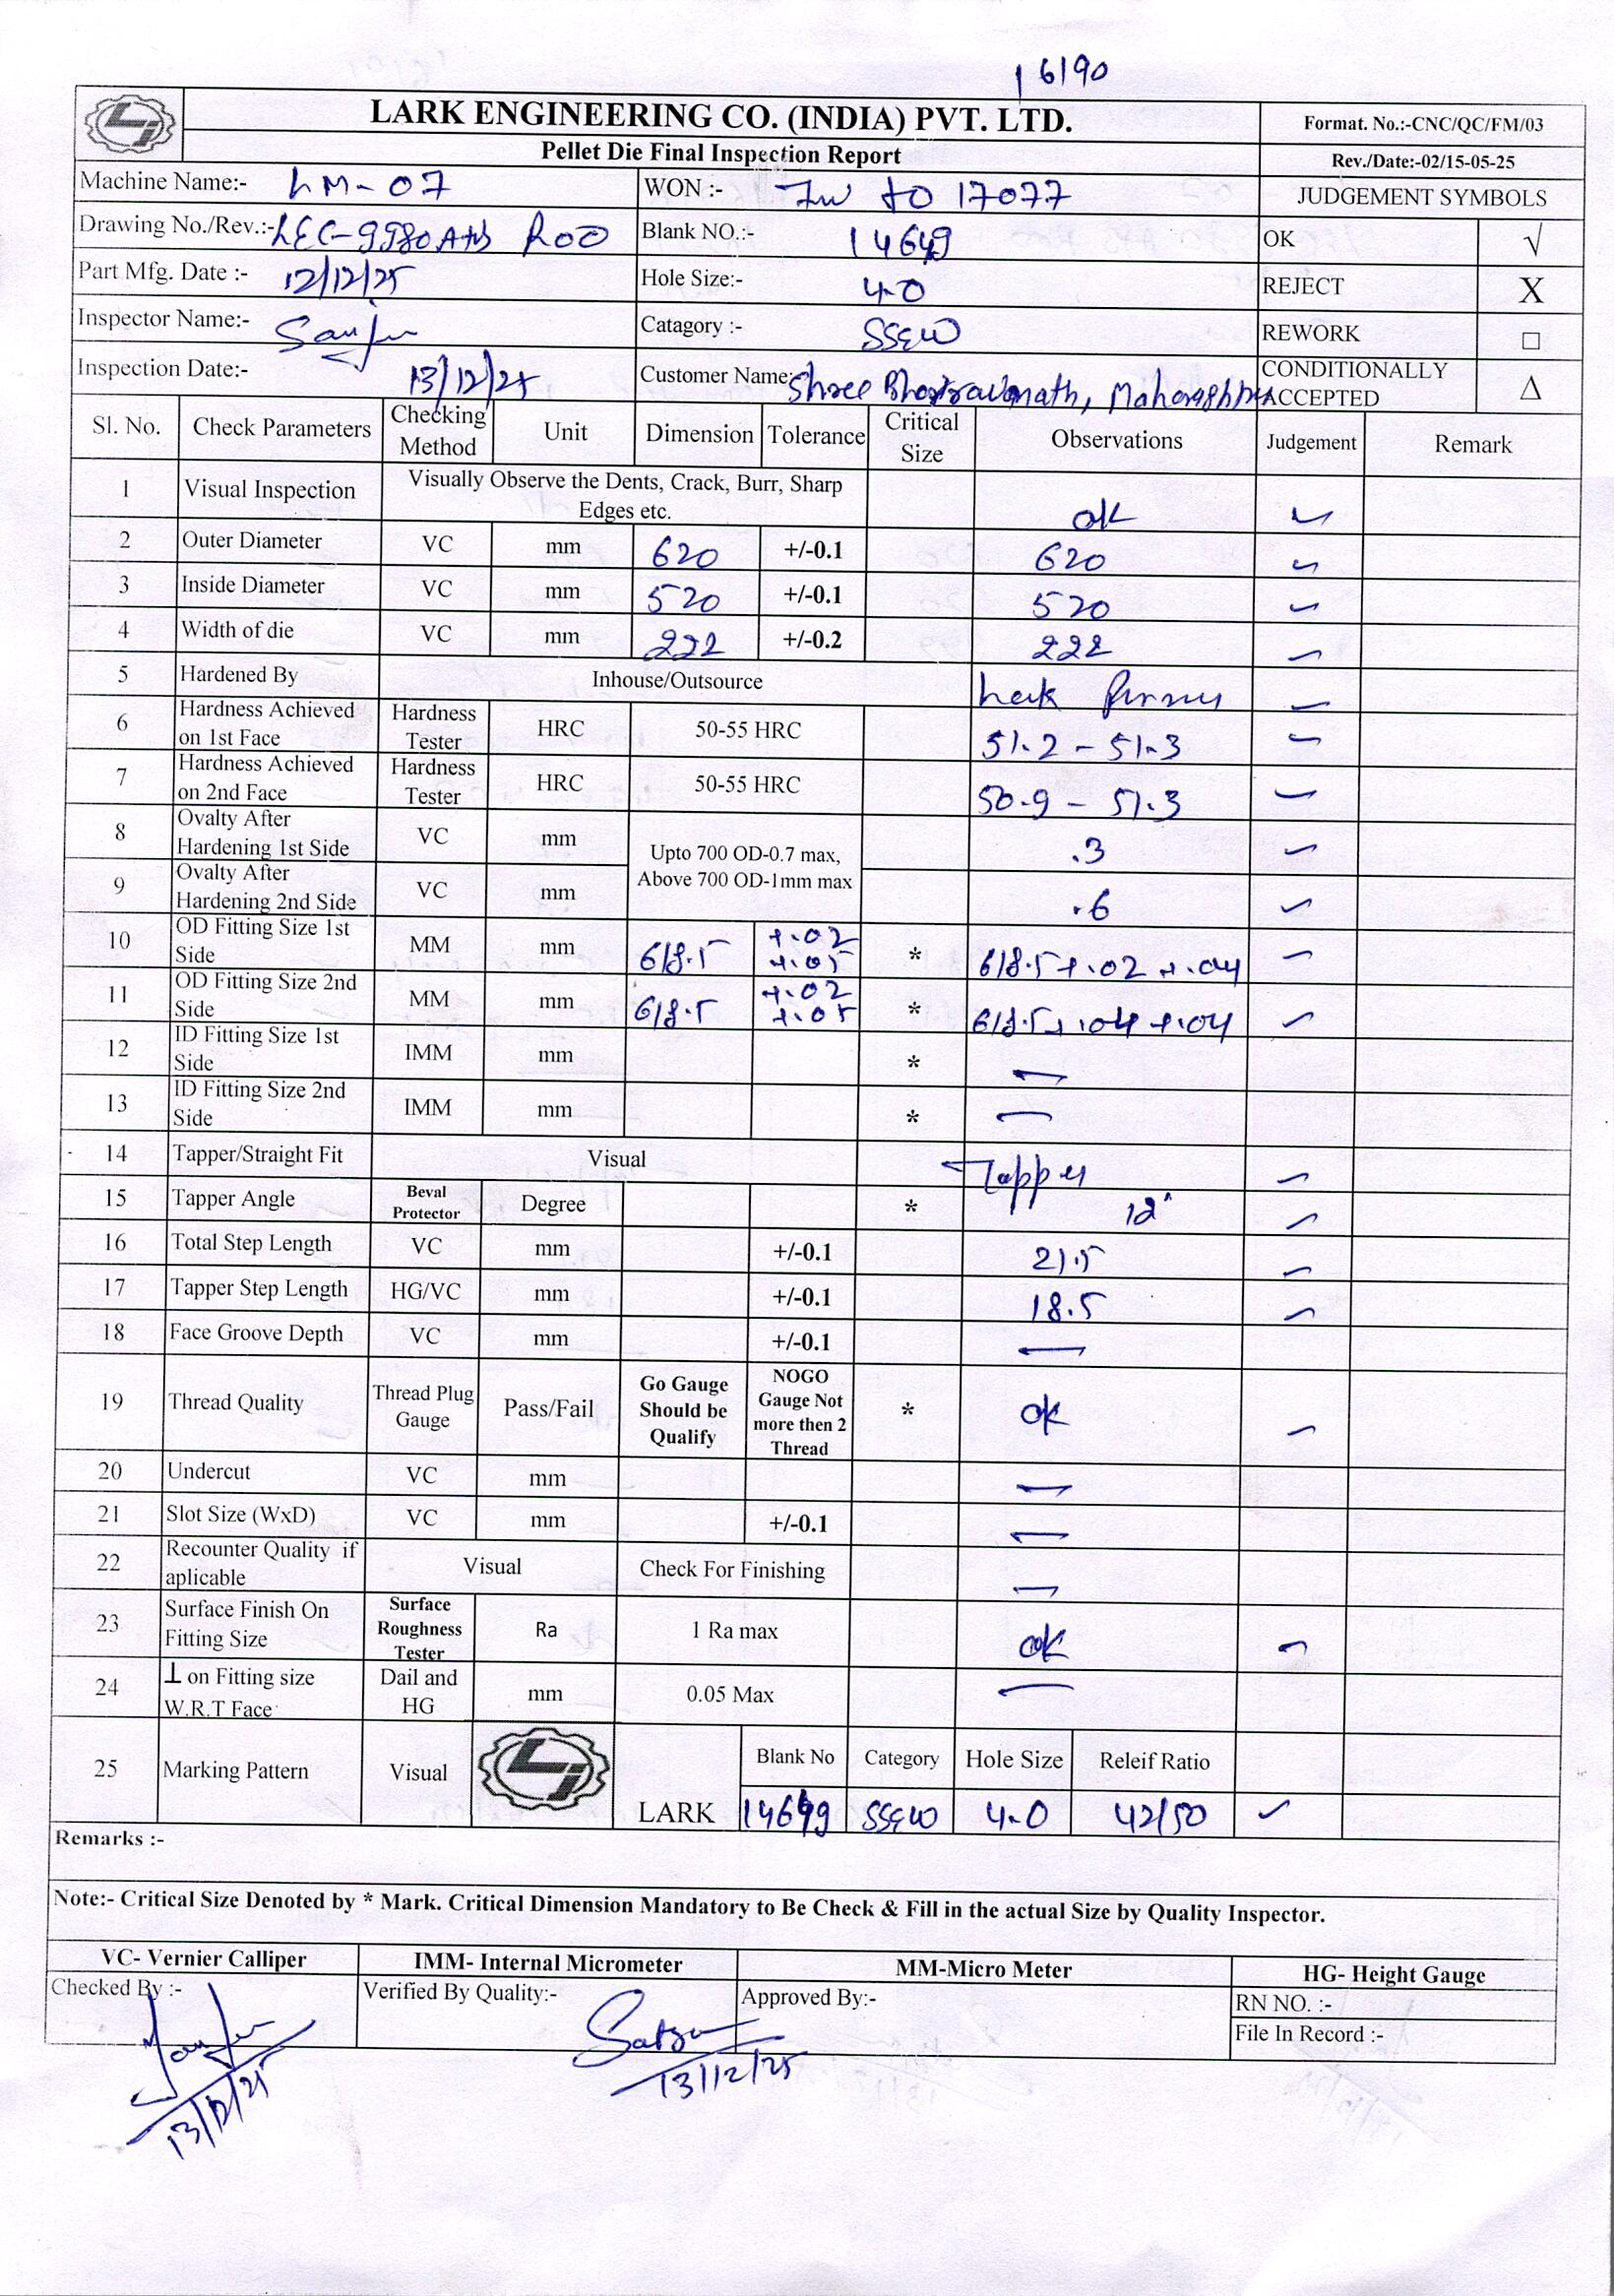 16190
LARK ENGINEERING CO. (INDIA) PVT. LTD.
Format. No.:-CNC/QC/FM/03
Pellet Die Final Inspection Report
Rev./Date:-02/15-05-25
Machine Name:- LM-07 WON :- JW to 17077 JUDGEMENT SYMBOLS
Drawing No./Rev.:- LEC-9980 R00 Blank NO.:- 14649 OK √
Part Mfg. Date :- 12/12/25 Hole Size:- 4.0 REJECT X
Inspector Name:- Catagory :- SSEW REWORK □
Inspection Date:- 13/12/25 Customer Name: Shree Maharashtra CONDITIONALLY ACCEPTED Δ
Sl. No. Check Parameters Checking Method Unit Dimension Tolerance Critical Size Observations Judgement Remark
1 Visual Inspection Visually Observe the Dents, Crack, Burr, Sharp Edges etc. ok ✓
2 Outer Diameter VC mm 620 +/-0.1 620 ✓
3 Inside Diameter VC mm 520 +/-0.1 520 ✓
4 Width of die VC mm 222 +/-0.2 222 ✓
5 Hardened By Inhouse/Outsource ✓
6 Hardness Achieved on 1st Face Hardness Tester HRC 50-55 HRC 51.2 - 51.3 ✓
7 Hardness Achieved on 2nd Face Hardness Tester HRC 50-55 HRC 50.9 - 51.3 ✓
8 Ovalty After Hardening 1st Side VC mm Upto 700 OD-0.7 max, Above 700 OD-1mm max .3 ✓
9 Ovalty After Hardening 2nd Side VC mm .6 ✓
10 OD Fitting Size 1st Side MM mm 618.5 +.02 +.05 * 618.5 +.02 +.04 ✓
11 OD Fitting Size 2nd Side MM mm 618.5 +.02 +.05 * 618.5 +.04 +.04 ✓
12 ID Fitting Size 1st Side IMM mm * —
13 ID Fitting Size 2nd Side IMM mm * —
14 Tapper/Straight Fit Visual Tapper ✓
15 Tapper Angle Beval Protector Degree * 12° ✓
16 Total Step Length VC mm +/-0.1 21.5 ✓
17 Tapper Step Length HG/VC mm +/-0.1 18.5 ✓
18 Face Groove Depth VC mm +/-0.1 —
19 Thread Quality Thread Plug Gauge Pass/Fail Go Gauge Should be Qualify NOGO Gauge Not more then 2 Thread * ok ✓
20 Undercut VC mm —
21 Slot Size (WxD) VC mm +/-0.1 —
22 Recounter Quality if aplicable Visual Check For Finishing —
23 Surface Finish On Fitting Size Surface Roughness Tester Ra 1 Ra max ok ✓
24 ⊥ on Fitting size W.R.T Face Dail and HG mm 0.05 Max —
25 Marking Pattern Visual LARK Blank No Category Hole Size Releif Ratio
14649 SSEW 4.0 42/50 ✓
Remarks :-
Note:- Critical Size Denoted by * Mark. Critical Dimension Mandatory to Be Check & Fill in the actual Size by Quality Inspector.
VC- Vernier Calliper IMM- Internal Micrometer MM-Micro Meter HG- Height Gauge
Checked By :- Verified By Quality:- Approved By:- RN NO. :-
File In Record :-
13/12/25 13/12/25